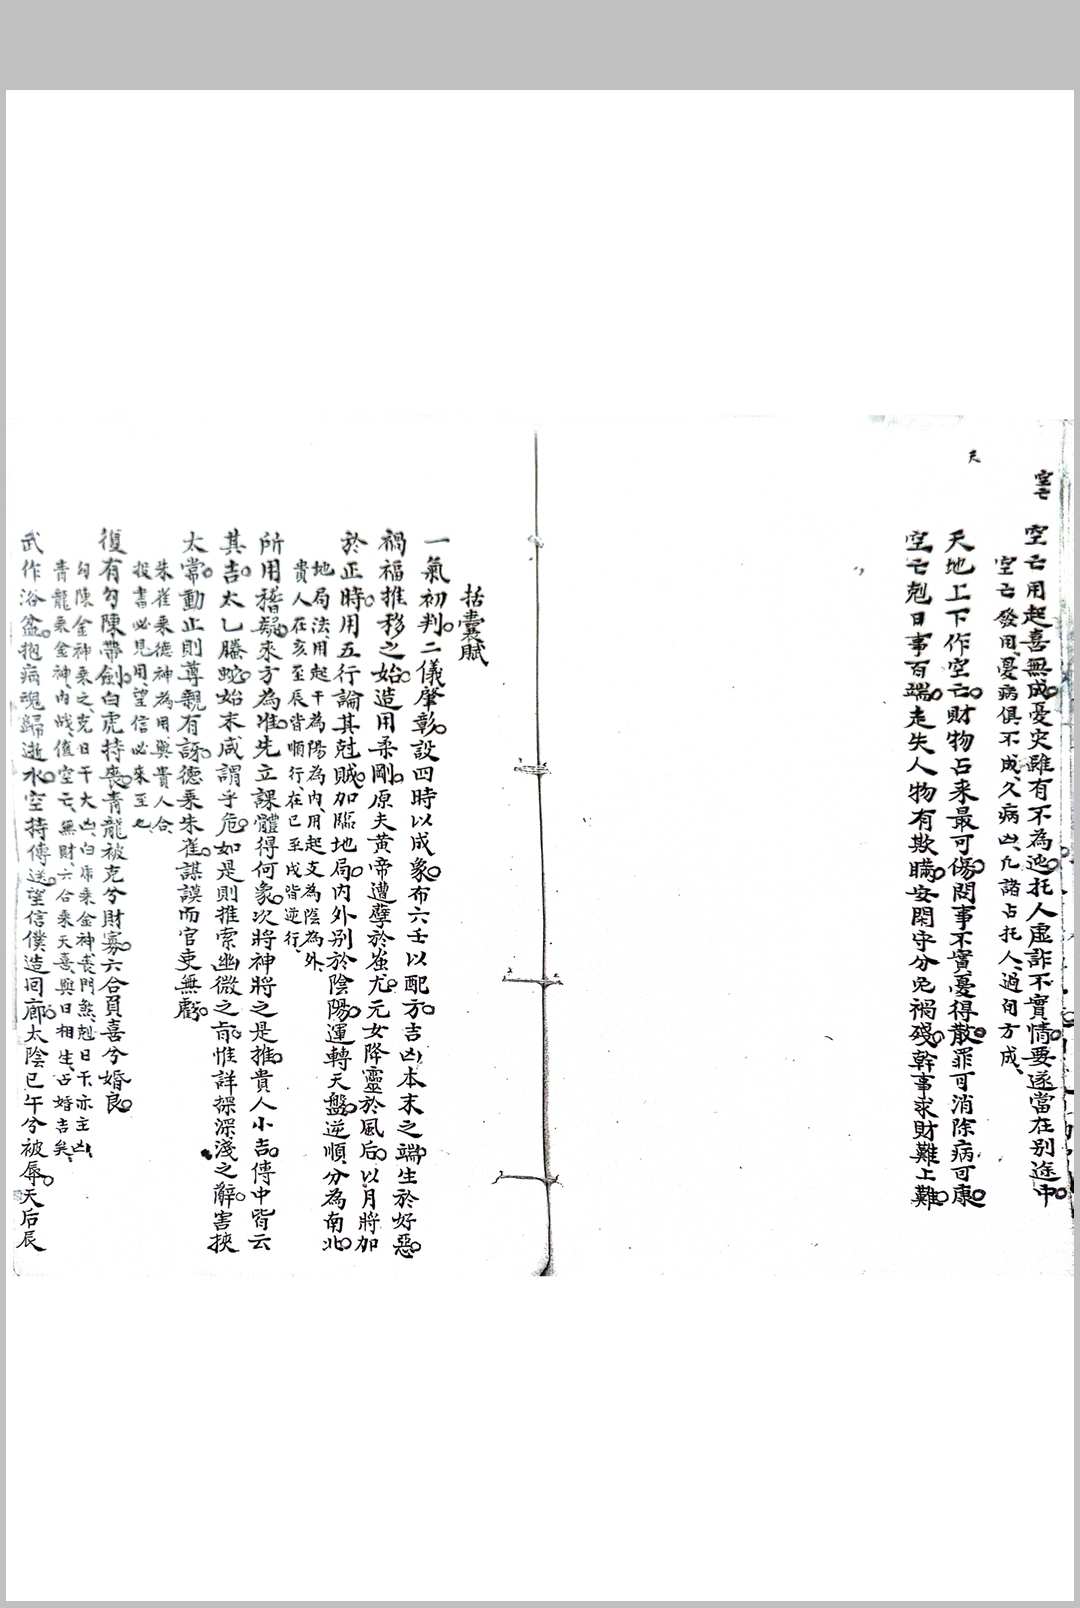 空亡
空亡用起喜無成憂災雖有不為迍托人虛詐不實情要遂當在别途中
空亡發用憂病俱不成久病凶凡諸占托人過旬方成
天
天地上下作空亡財物占来最可傷問事不實憂得散罪可消除病可康
空亡剋日事百端走失人物有欺瞞安閑守分免禍殘幹事求財難上難
括囊賦
一氣初判二儀肇彰設四時以成象布六壬以配方吉凶本末之端生於好惡
禍福推移之始造用柔剛原夫黃帝遭孽於蚩尤元女降靈於風后以月將加
於正時用五行論其尅賊加臨地局内外别於陰陽運轉天盤逆順分為南北
地局法用起干為陽為内用起支為陰為外
貴人在亥至辰皆順行在巳至戌皆逆行
所用稽疑來方為准先立課體得何象次將神將之是推貴人小吉傳中皆云
其吉太乙騰蛇始末咸謂乎危如是則推索幽微之前惟詳探深淺之辭害挾
太常動止則尊親有訝德乗朱雀謀謨而官吏無虧
朱雀乗德神為用與貴人合
投書必見用望信必來至也
復有勾陳帶劍白虎持喪青龍被克兮財寡六合負喜兮婚良
勾陳金神乗之克日干大凶白虎乗金神喪門煞尅日干亦主凶
青龍乗金神内戰值空亡無財六合乗天喜與日相生占婚吉矣
武作浴盆抱病魂歸逝水空持傳送望信僕造囘廊太陰已午兮被辱天后辰